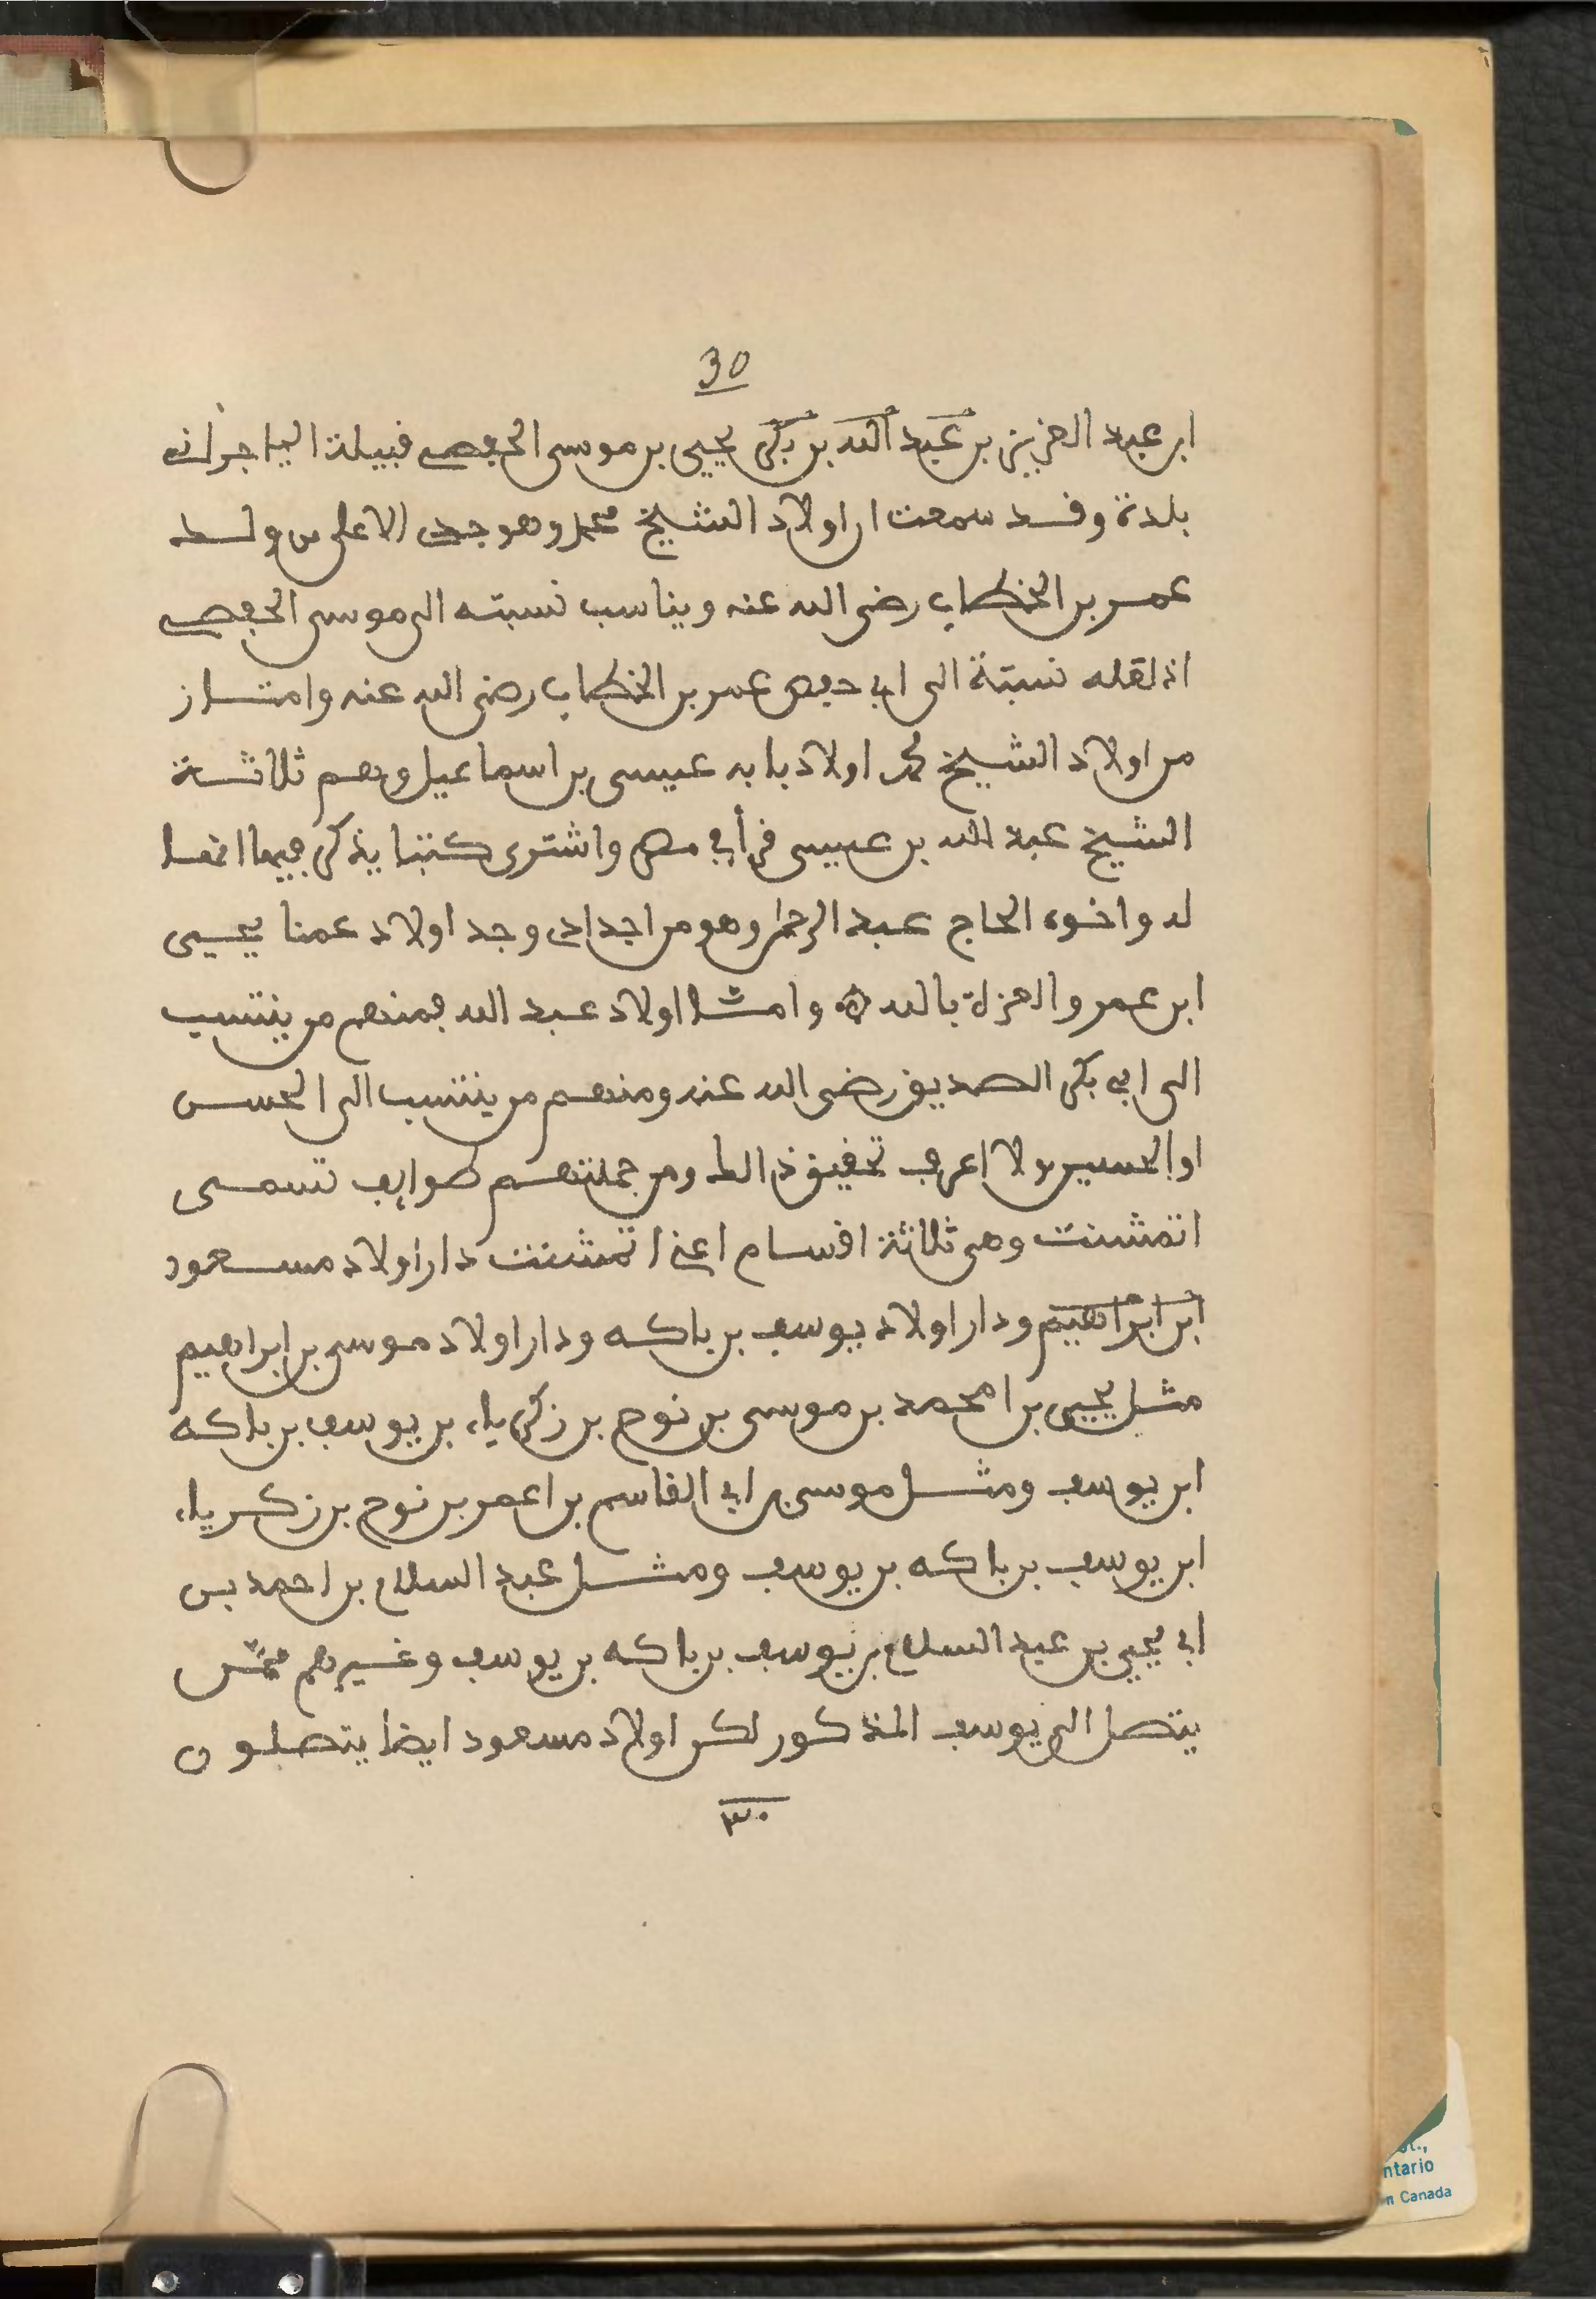 30
ابن عبد العزيز بن عبد الله بن بكر يحيى بن موسى الحفصي قبيلة اليا جراني
بلدة وقد سمعت ان اولاد الشيخ محمد وهو جدي الاعلى من ولد
عمر بن الخطاب رضى الله عنه ويناسب نسبته الى موسى الحفصي
اذ لقله نسبتة الى ابي حفص عمر بن الخطاب رضى الله عنه وامتاز
من اولاد الشيخ محمد اولاد بابه عيسى بن اسماعيل وهم ثلاثة
الشيخ عبد الله بن عيسى قرأ في مصر واشترى كتبا يذكر فيها انها
له واخوه الحاج عبد الرحمن وهو من اجدادي وجد اولاد عمنا يحيى
ابن عمر والعزة بالله وامّا اولاد عبد الله فمنهم من ينتسب
الى ابي بكر الصديق رضى الله عنه ومنهم من ينتسب الى الحسن
او الحسين ولا اعرف تحقيق ذالك ومن جملتهم طوايف تسمى
اتمشنت وهي ثلاثة اقسام اعني اتمشنت دار اولاد مسعود
ابن ابراهيم ودار اولاد يوسف بن باكه ودار اولاد موسى بن ابراهيم
مثل يحيى بن امحمد بن موسى بن نوح بن زكرياء بن يوسف بن باكه
ابن يوسف ومثل موسى بن ابي القاسم بن اعمر بن نوح بن زكرياء
ابن يوسف بن باكه بن يوسف ومثل عبد السلام بن احمد بن
ابي يحيى بن عبد السلام بن يوسف بن باكه بن يوسف وغيرهم ممّن
يتصل الى يوسف المذكور لكن اولاد مسعود ايضا يتصلون
٣٠
ntario
n Canada